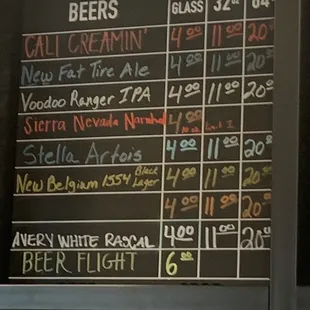 BEERS GLASS 32oz 64oz
CALI CREAMIN' 4.00 11.00 20.00
New Fat Tire Ale 4.00 11.00 20.00
Voodoo Ranger IPA 4.00 11.00 20.00
Sierra Nevada Narwhal 4.00
Stella Artois 4.00 11.00 20.00
New Belgium 1554 Black Lager 4.00 11.00 20.00
4.00 11.00 20.00
AVERY WHITE RASCAL 4.00 11.00 20.00
BEER FLIGHT 6.00